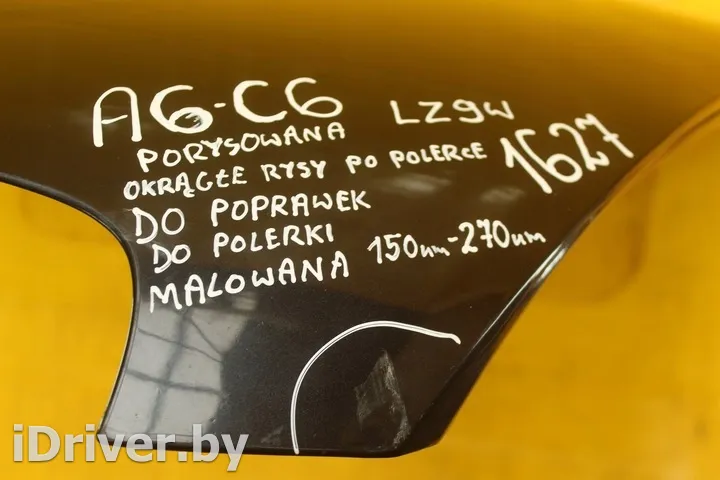 A6-C6 LZ9W
PORYSOWANA
OKRĄGŁE RYSY PO POLERCE 1627
DO POPRAWEK
DO POLERKI
MALOWANA 150um-270um
iDriver.by